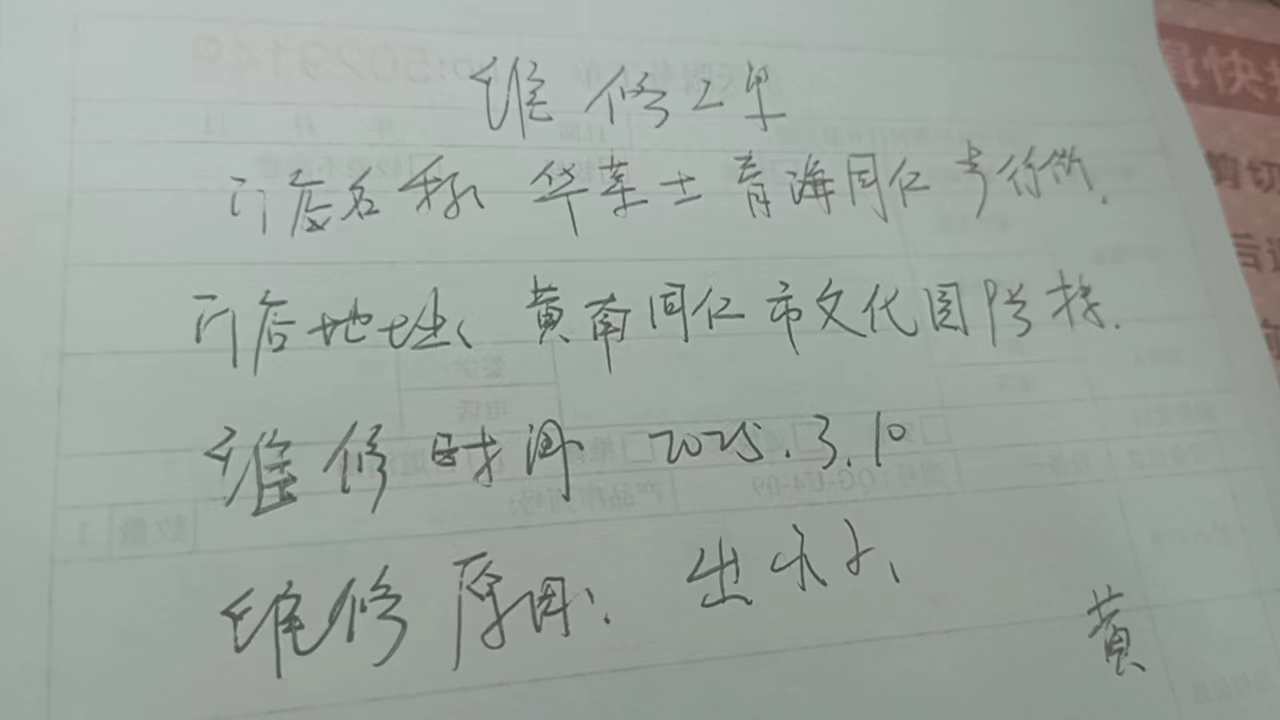 维修工单
门店名称、华莱士青海同仁步行街.
门店地址、黄南同仁市文化园隔壁.
维修时间 2025.3.10
维修原因: 出水小、
黄